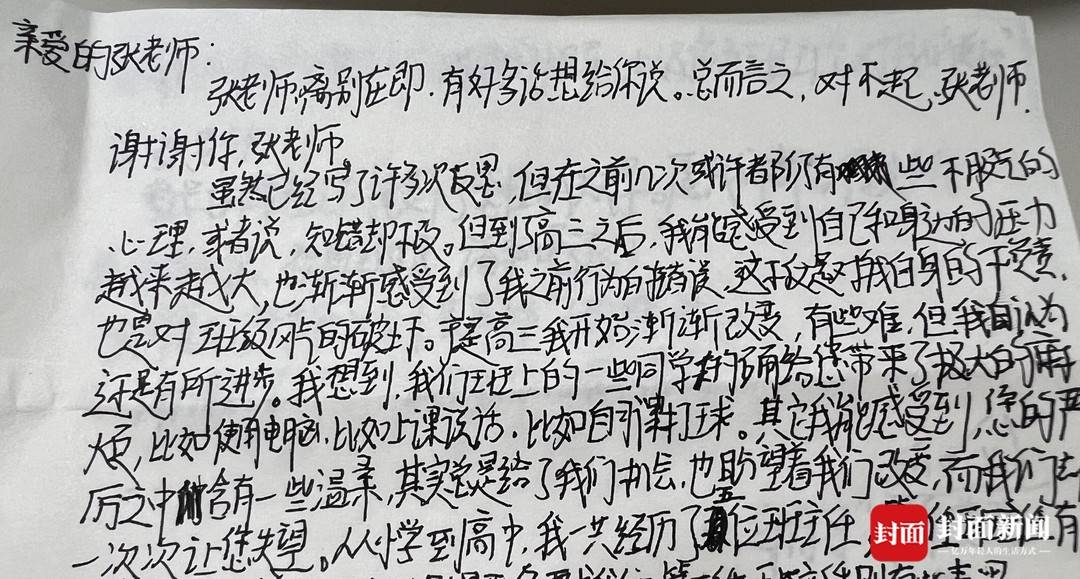 亲爱的张老师:
张老师,离别在即,有好多话想给你说。总而言之,对不起,张老师,
谢谢你,张老师。
虽然已经写了许多次反思,但在之前几次或许都仍有些不服气的
心理,或者说,知错却不改。但到了高三之后,我能感受到自己和身边的压力
越来越大,也渐渐感受到了我之前行为的错误,这不仅是对我自身的不负责,
也是对班级风气的破坏。高三我开始渐渐改变,有些难,但我自认为
还是有所进步。我想到,我们班上的一些同学的确给您带来了极大的麻
烦,比如使用电脑,比如上课说话,比如自习课打球。其实我能感受到,您的严
厉之中含有一些温柔,其实总是给了我们机会,也盼望着我们改变,而我们
一次次让您失望。从小学到高中,我一共经历了五位班主任,有
封面 封面新闻
亿万年轻人的生活方式